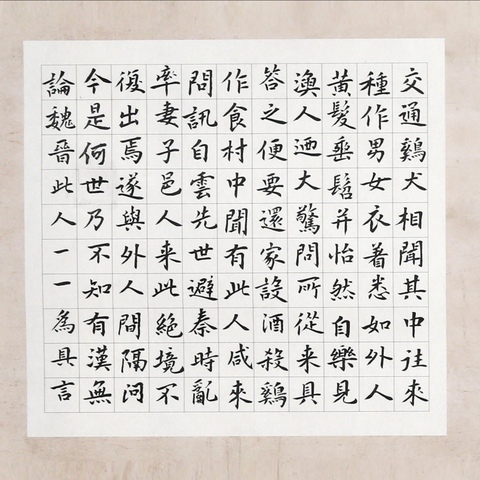 交通鷄犬相聞其中往來
種作男女衣着悉如外人
黄髮垂髫并怡然自樂見
漁人迺大驚問所從来具
答之便要還家設酒殺鷄
作食村中聞有此人咸來
問訊自雲先世避秦時亂
率妻子邑人来此絶境不
復出焉遂與外人間隔问
今是何世乃不知有漢無
論魏晉此人一一為具言